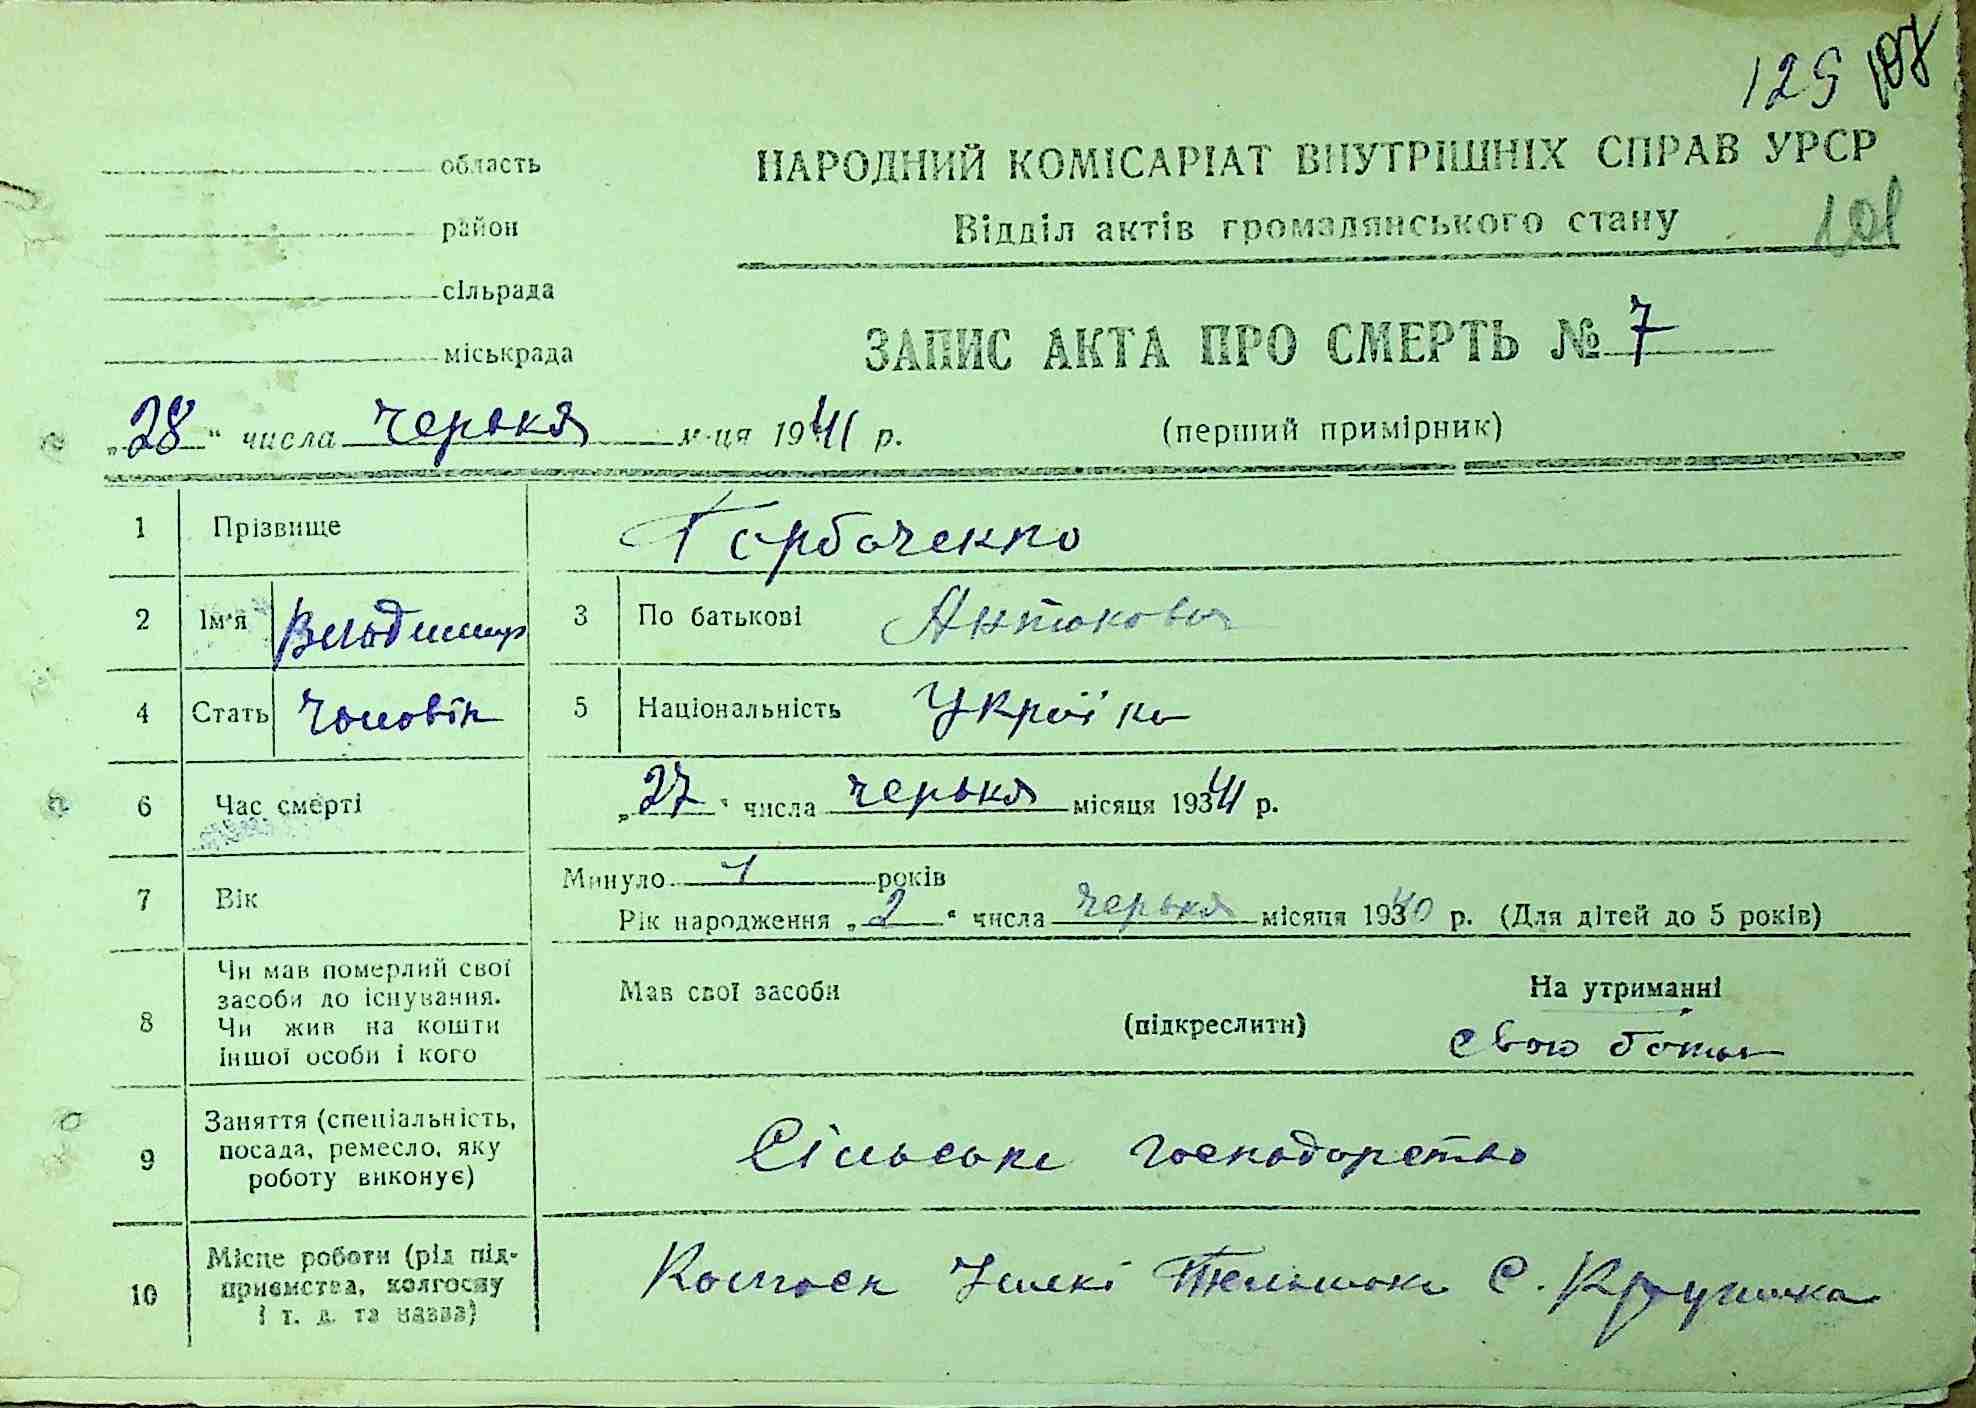 125 107
101
область
район
сільрада
міськрада
НАРОДНИЙ КОМІСАРІАТ ВНУТРІШНІХ СПРАВ УРСР
Відділ актів громадянського стану
ЗАПИС АКТА ПРО СМЕРТЬ № 7
„28“ числа червня м-ця 1941 р.
(перший примірник)
1 Прізвище Горбаченко
2 Ім'я Владимир 3 По батькові Антонович
4 Стать Чоловік 5 Національність Україн
6 Час смерті „27“ числа червня місяця 1941 р.
7 Вік Минуло 1 років
Рік народження „2“ числа червня місяця 1940 р. (Для дітей до 5 років)
8 Чи мав померлий свої засоби до існування. Чи жив на кошти іншої особи і кого
Мав свої засоби (підкреслити) На утриманні
свою батьк
9 Заняття (спеціальність, посада, ремесло, яку роботу виконує) Сільське господарство
10 Місце роботи (рід підприємства, колгоспу і т. д. та назва) Колгосп с.